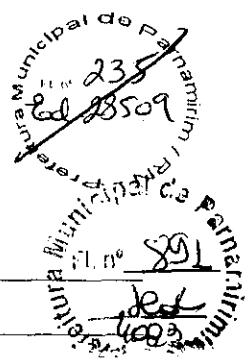 Prefeitura Municipal de Parnamirim / RN
Fl. nº 235
28509
Prefeitura Municipal de Parnamirim
Fl. nº 891
4003